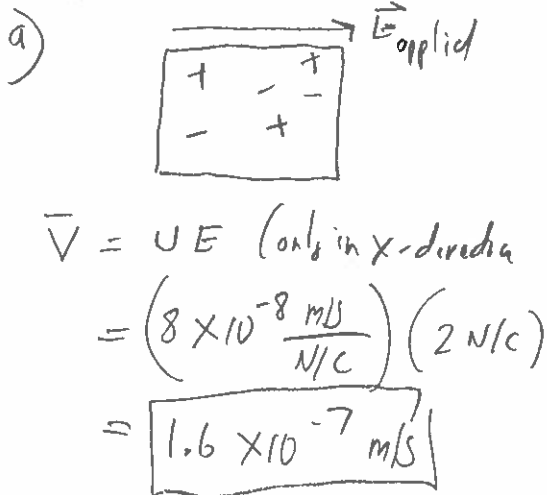 a)
E applied
+ - + -
- +
V̄ = u E (only in x-direction
= (8 × 10⁻⁸ m/s / N/C) (2 N/C)
= 1.6 × 10⁻⁷ m/s